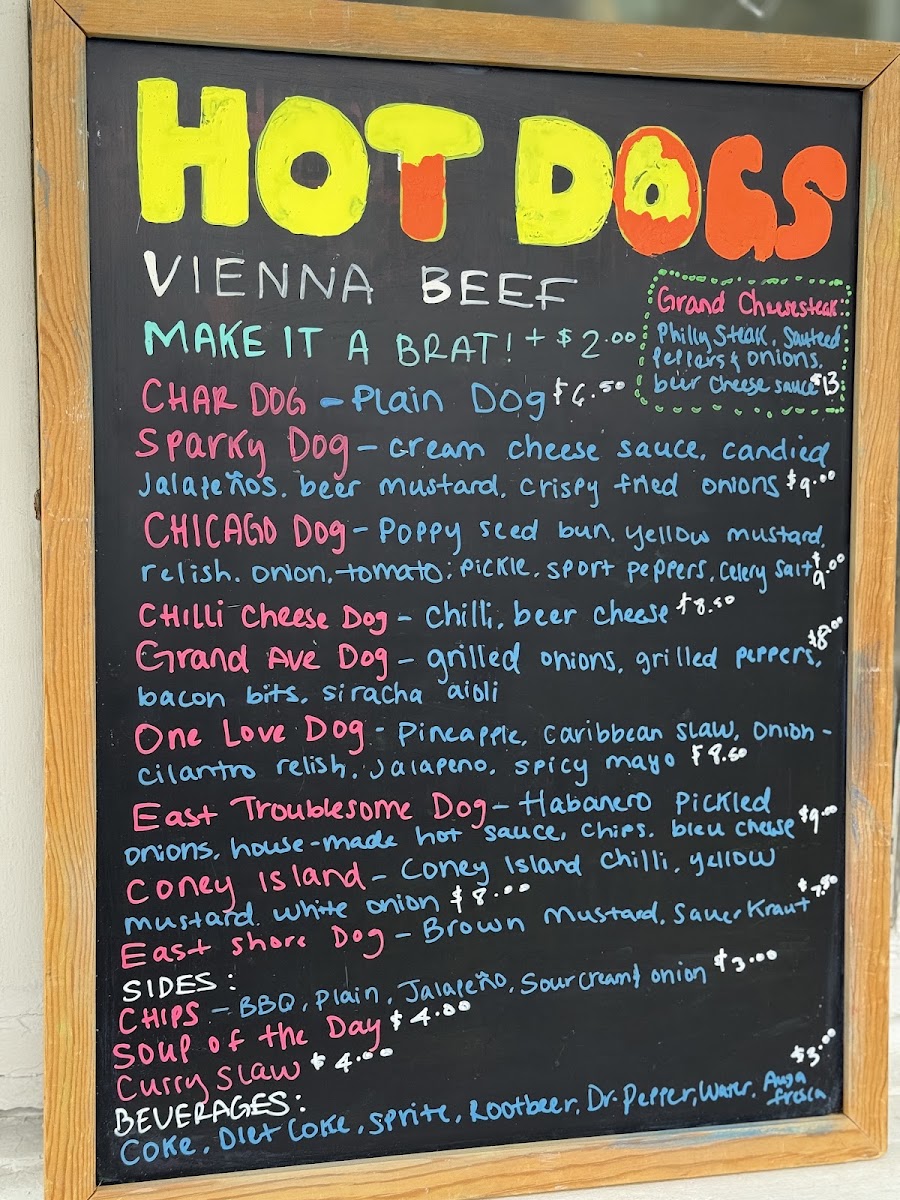 HOT DOGS
VIENNA BEEF
MAKE IT A BRAT! + $2.00
Grand Cheesesteak:
Philly Steak, Sauteed
Peppers & onions,
beer cheese sauce $13
CHAR DOG - Plain Dog $6.50
Sparky Dog - cream cheese sauce, candied
Jalapeños, beer mustard, crispy fried onions $9.00
CHICAGO Dog - Poppy seed bun, yellow mustard,
relish, onion, tomato, pickle, sport peppers, celery salt $9.00
CHILLI Cheese Dog - Chilli, beer cheese $8.50
Grand Ave Dog - grilled onions, grilled peppers, $8.00
bacon bits, siracha aioli
One Love Dog - Pineapple, Caribbean slaw, onion-
cilantro relish, Jalapeno, spicy mayo $8.50
East Troublesome Dog - Habanero Pickled
onions, house-made hot sauce, chips, bleu cheese $9.00
Coney Island - Coney Island chilli, yellow
mustard, white onion $8.00
East Shore Dog - Brown mustard, sauerkraut $7.50
SIDES:
CHIPS - BBQ, Plain, Jalapeño, Sour cream & onion $3.00
Soup of the Day $4.00
Curry Slaw $4.00
BEVERAGES: $3.00
Coke, Diet Coke, Sprite, Rootbeer, Dr. Pepper, Water, Auga fresca